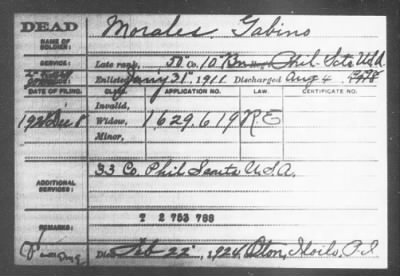 DEAD
NAME OF SOLDIER: Morales, Gabino
SERVICE: Late rank, 50" Co. 10" Bn Phil. Scts U.S.A.
Enlisted Jany 31", 1911. Discharged Aug 4
DATE OF FILING. CLASS. APPLICATION NO. LAW. CERTIFICATE NO.
Invalid,
1928 Dec 8 Widow, 1629,619 RE
Minor,
ADDITIONAL SERVICES: 33 Co. Phil. Scouts U.S.A.
T 2 753 788
REMARKS:
Died Feb 22", 1924, Oton, Iloilo, P.I.